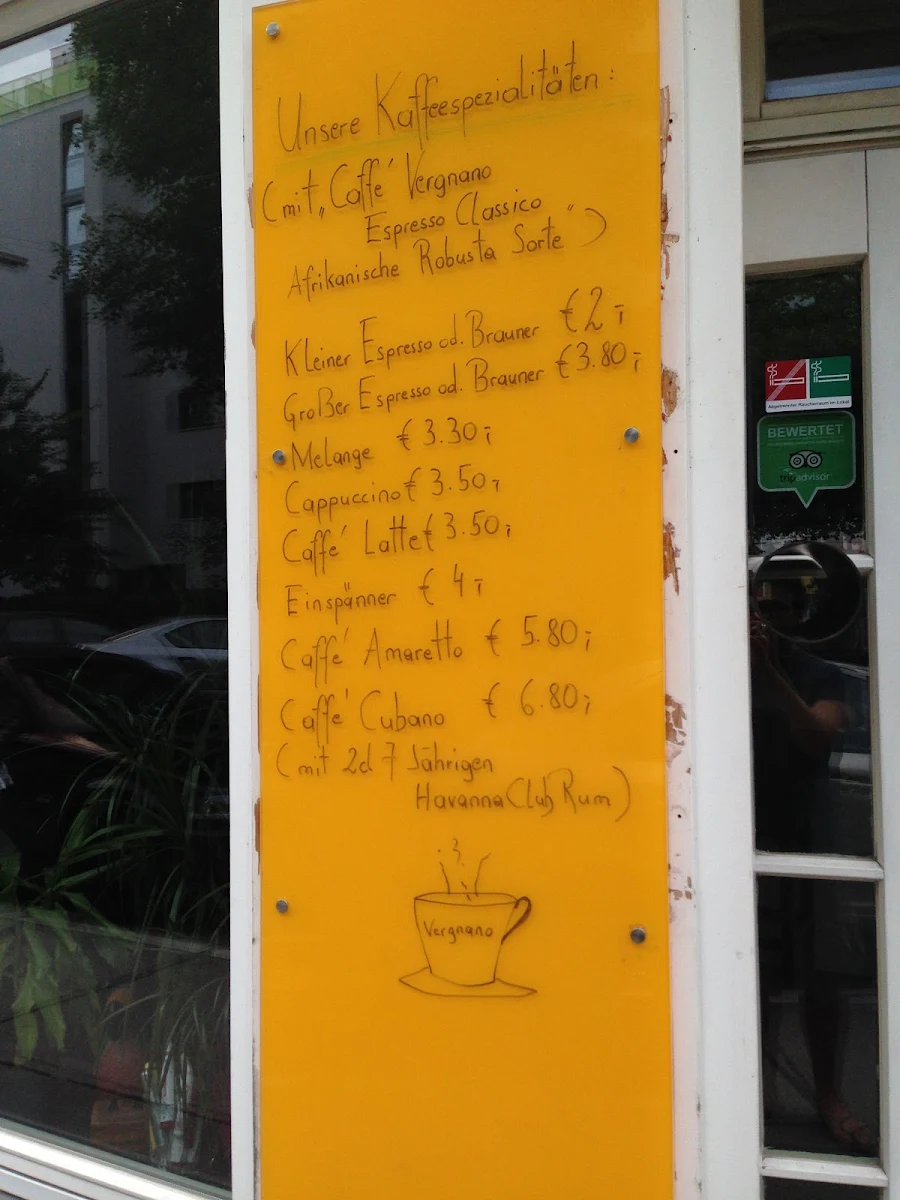 Unsere Kaffeespezialitäten:
(mit „Caffé Vergnano
Espresso Classico
Afrikanische Robusta Sorte")
Kleiner Espresso od. Brauner €2,-
Großer Espresso od. Brauner €3.80,-
Melange €3.30,-
Cappuccino €3.50,-
Caffé Latte €3.50,-
Einspänner €4,-
Caffé Amaretto €5.80,-
Caffé Cubano €6.80,-
(mit 2cl 7 Jährigen
Havanna Club Rum)
Vergnano
Abgetrennter Raucherraum im Lokal
BEWERTET
tripadvisor